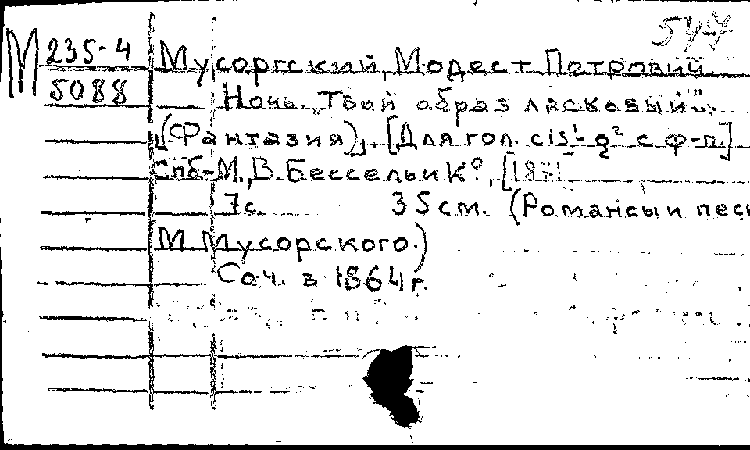 547
М 235-4
5088
Мусоргский, Модест Петрович
Ночь. „Твой образ ласковый“.
(Фантазия). [Для гол. cis¹-g² с ф-п.]
Спб-М., В. Бессель и К°, [187
7 с. 35 см. (Романсы и песн
М. Мусоргского.)
Соч. в 1864 г.